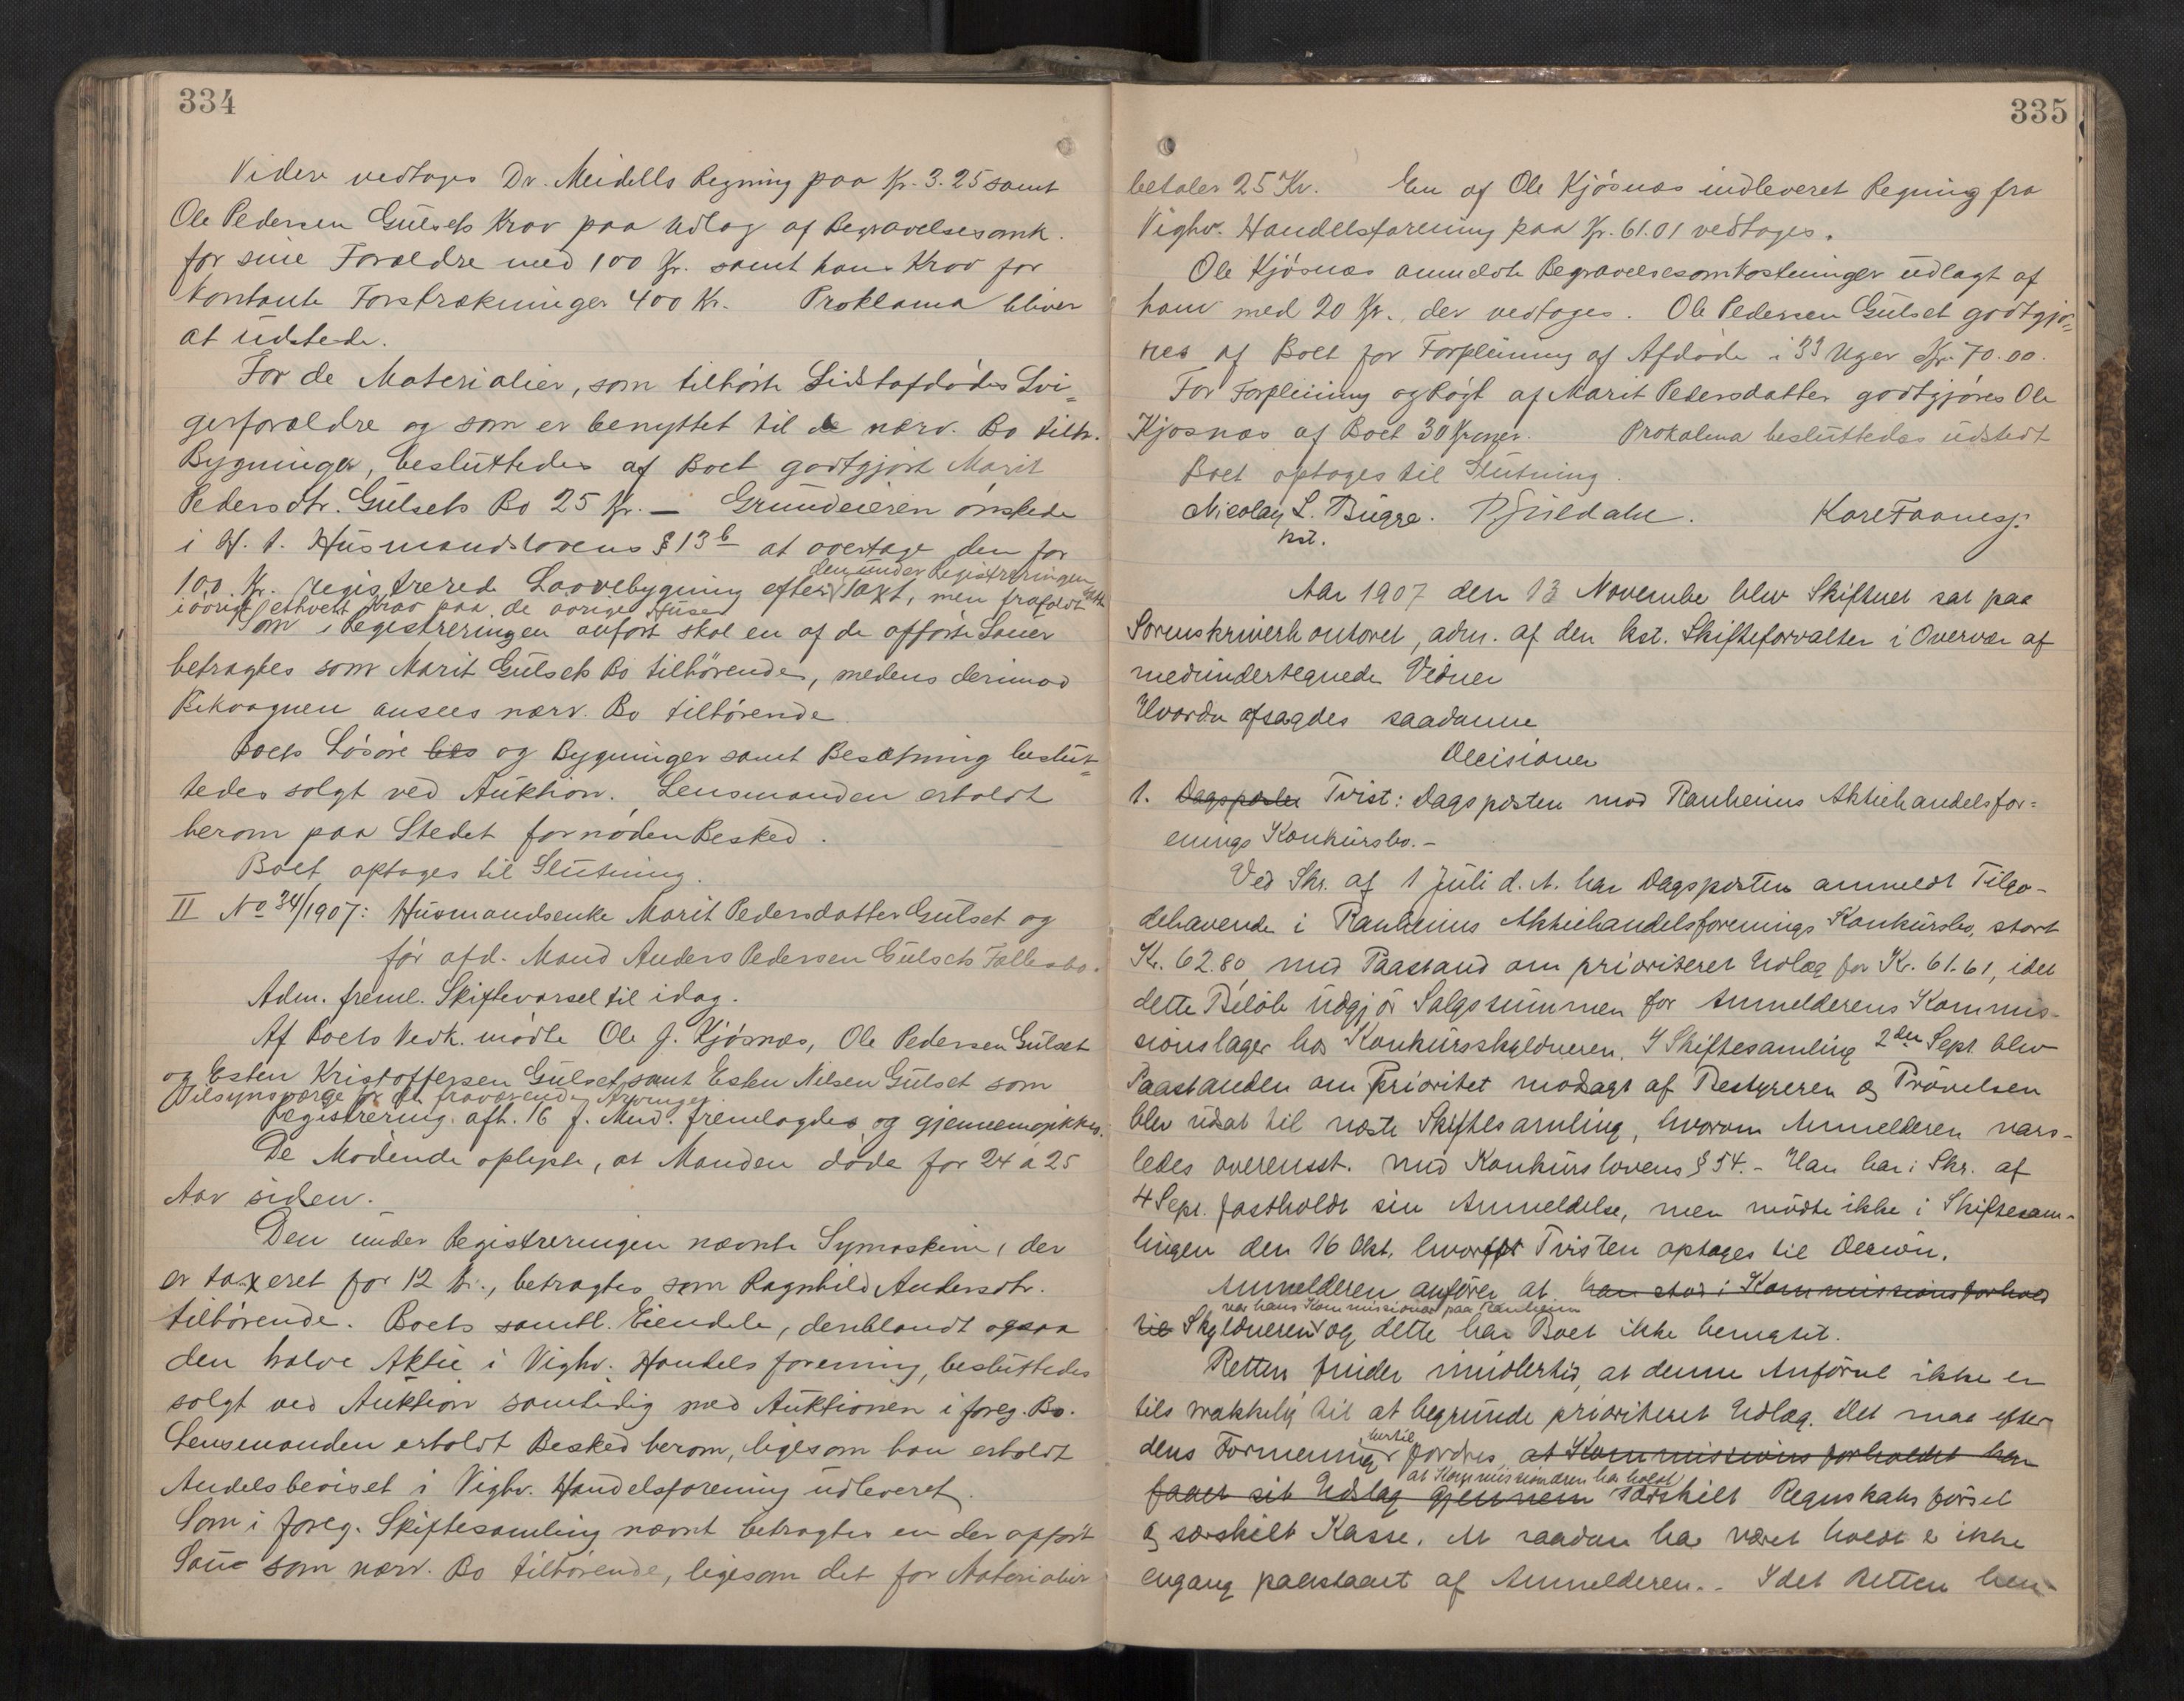 334
Videre vedtages Dr. Meidells Regning paa Kr. 3.25 samt
Ole Pedersen Gülsets Krav paa Udlæg af Begravelsesomk.
for sine Forældre med 100 Kr. samt hans Krav for
kontante Forstrækninger 400 Kr. Proklama bliver
at üdstede.
For de Materialier, som tilhørte Sidstafdødes Svi=
gerforældre og som er benyttet til de nærv. Bo tilh.
Bygninger, beslüttedes af Boet godtgjort Marit
Pedersdtr. Gülsets Bo 25 Kr. — Grundeieren ønskede
i H. t. Hüsmandslovens § 13 b at overtage den for
100 Kr. registrerede Laavebygning efter den under Registreringen satte Taxt, men frafaldt
iøvrigt ethvert Krav paa de øvrige Huse
Som i Registreringen anført skal en af de opførte Sauer
betragtes som Marit Gülsets Bo tilhørende, medens derimod
Bikvognen ansees nærv. Bo tilhørende.
Boets Løsøre bes og Bygninger samt Besætning beslüt=
tedes solgt ved Auktion. Lensmanden erholdt
herom paa Stedet fornøden Besked.
Boet optages til Slütning.
II No 34/1907: Hüsmandsenke Marit Pedersdatter Gülset og
før afd. Mand Anders Pedersen Gülsets Fællesbo.
Adm. freml. Skiftevarsel til idag.
Af Boets Vedk. mødte Ole J. Kjøsnæs, Ole Pedersen Gülset
og Esten Kristoffersen Gülset samt Esten Nilsen Gülset som
Tilsynsværge for de fraværende Arvinger.
Registrering afh. 16 f. Mnd. fremlagdes og gjennemgikkes.
De Mødende oplyste, at Manden døde for 24 à 25
Aar siden.
Den under Registreringen nævnte Symaskine, der
er taxeret for 12 Kr., betragtes som Ragnhild Andersdtr.
tilhørende. Boets samtl. Eiendele, deriblandt ogsaa
den halve Aktie i Vighv. Handelsforening, beslüttedes
solgt ved Auktion samtidig med Auktionen i foreg. Bo.
Lensmanden erholdt Besked herom, ligesom han erholdt
Andelsbeviset i Vighv. Handelsforening üdleveret.
Som i foreg. Skiftesamling nævnt betragtes en der opført
Sau som nærv. Bo tilhørende, ligesom det for Materialier
335
betaler 25 Kr. En af Ole Kjøsnæs indleveret Regning fra
Vighv. Handelsforening paa Kr. 61.01 vedtages.
Ole Kjøsnæs anmeldte Begravelsesomkostninger üdlagt af
ham med 20 Kr., der vedtages. Ole Pedersen Gülset godtgjø=
res af Boet for Forpleining af Afdøde i 33 Uger Kr. 70.00.
For Forpleining og Røgt af Marit Pedersdatter godtgjøres Ole
Kjøsnæs af Boet 30 Kroner. Prokalma beslüttedes üdstedt
Boet optages til Slütning.
Nicolay L. Bügge. Kore Faanes.
kst.
Aar 1907 den 13 Novembe blev Skifteret sat paa
Sorenskriverkontoret, adm. af den kst. Skifteforvalter i Overvær af
medundertegnede Vidner
Hvorda afsagdes saadanne
Decisioner
1. Dagsposten Tvist: Dagsposten mod Ranheims Aktiehandelsfor=
enings Konkürsbo. -
Ved Skr. af 1 Jüli d. A. har Dagsposten anmeldt Tilgo-
dehavende i Ranheims Aktiehandelsforenings Konkürsbo, stort
Kr. 62.80, med Paastand om prioriteret Udlæg for Kr. 61.61, idet
dette Beløb üdgjør Salgssümmen for Anmelderens Kommis-
sionslager hos Konkürsskyldneren. I Skiftesamling 2den Sept. blev
Paastanden om Prioritet modsagt af Bestyreren og Prøvelsen
blev üdsat til næste Skiftesamling, hvorom Anmelderen vars-
ledes overensst. med Konkürslovens § 54. - Han har i Skr. af
4 Sept. fastholdt sin Anmeldelse, men mødte ikke i Skiftesam-
lingen den 16 Okt. hvorfor Tvisten optoges til Decision.
Anmelderen anfører at han stod i Kommissionsforhold
til Skyldneren var hans Kommissionær paa Ranheim og dette har Boet ikke benegtet.
Retten finder imidlertid, at denne Anførsel ikke er
tilstrækkelig til at begrunde prioriteret Udlæg. Det maa efter
dens Formening hertil fordres at Kommissionsforholdet har
faaet sit Udslag gjennem at Kommissionæren har holdt særskilt Regnskabsførsel
og særskilt Kasse. At saadan har været holdt er ikke
engang paastaaet af Anmelderen. - Idet Retten hen-